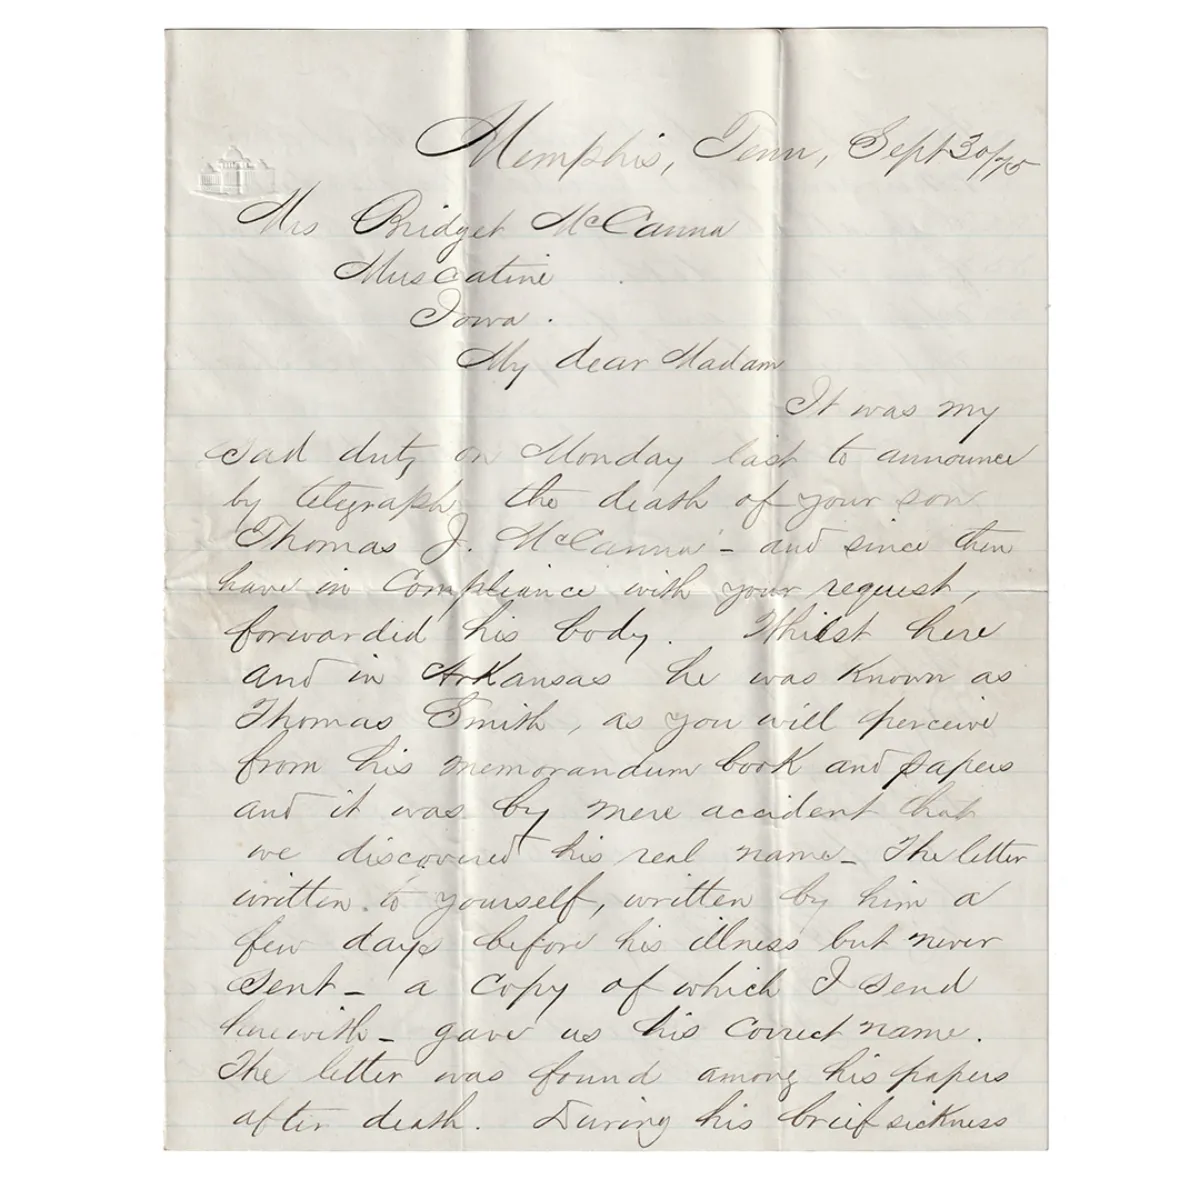 Memphis, Tenn, Sept 30/75
Mrs Bridget McCanna
Muscatine
Iowa.
My dear Madam
It was my
sad duty on Monday last to announce
by telegraph the death of your son
Thomas J. McCanna - and since then
have in compliance with your request,
forwarded his body. Whilst here
and in Arkansas he was known as
Thomas Smith, as you will perceive
from his memorandum book and papers
and it was by mere accident that
we discovered his real name - The letter
written to yourself, written by him a
few days before his illness but never
sent - a copy of which I send
herewith - gave us his correct name.
The letter was found among his papers
after death. During his brief sickness